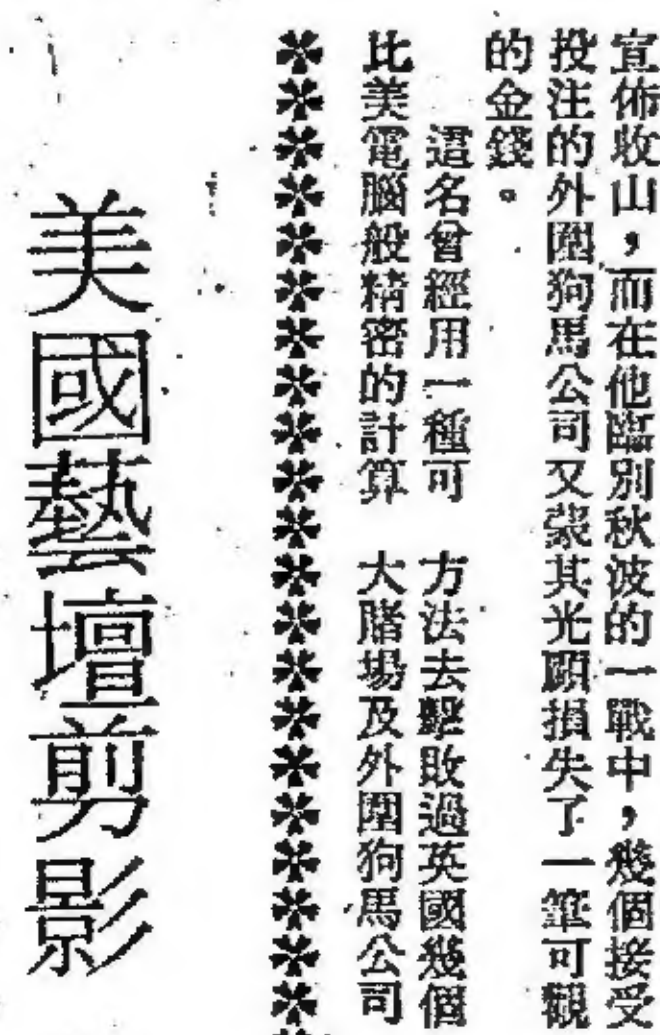 宣佈收山，而在他臨別秋波的一戰中，幾個接受
投注的外圍狗馬公司又蒙其光顧損失了一筆可觀
的金錢。
這名曾經用一種可
比美電腦般精密的計算
方法去擊敗過英國幾個
大賭場及外圍狗馬公司
美國藝壇剪影